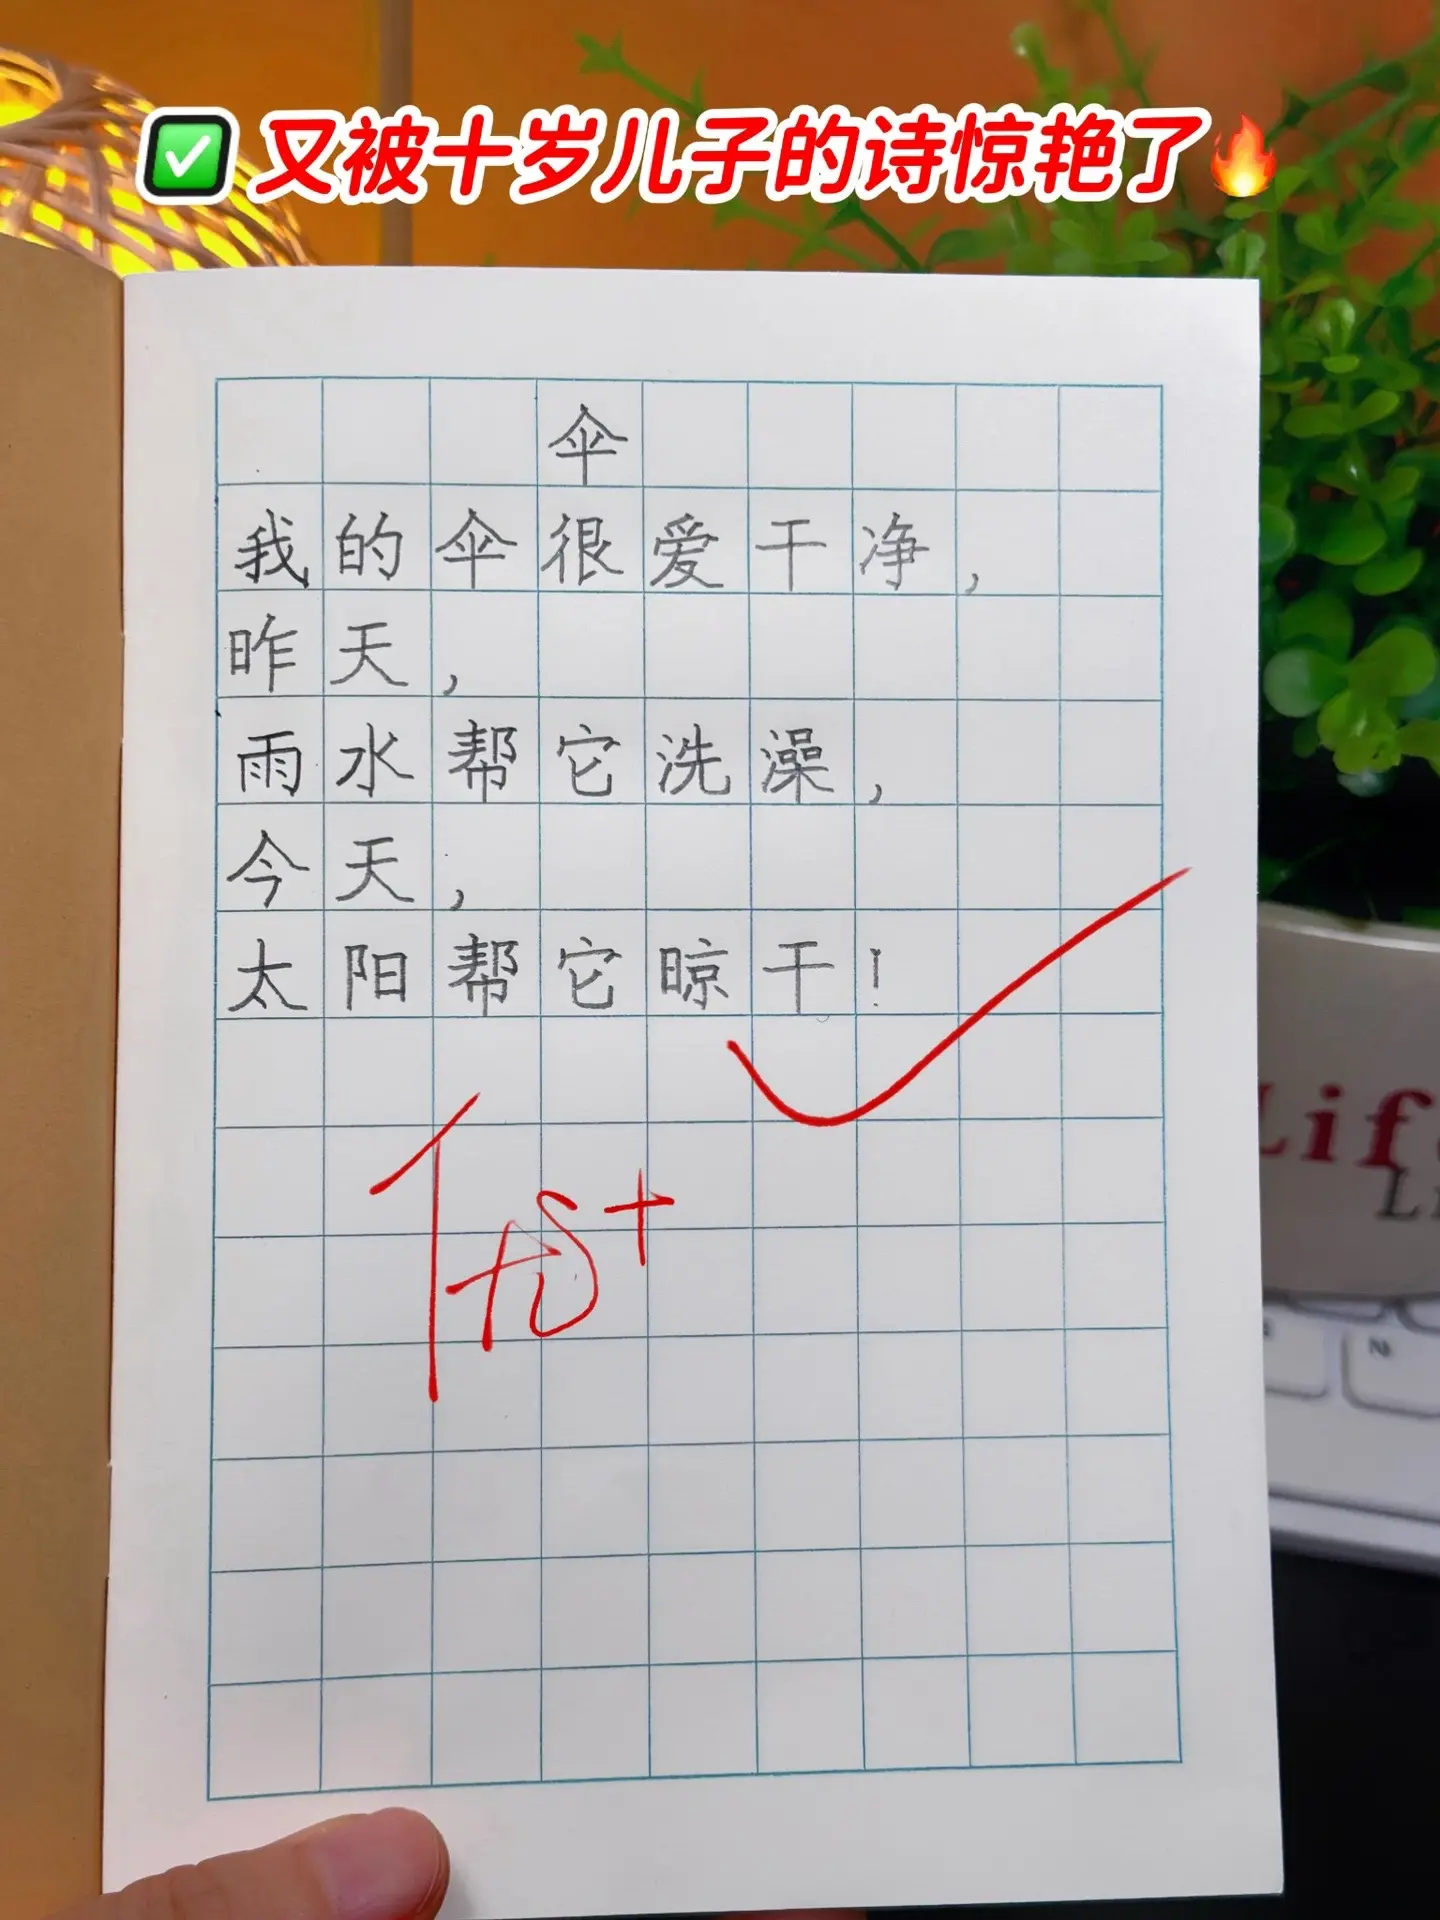 ✅ 又被十岁儿子的诗惊艳了🔥
伞
我的伞很爱干净，
昨天，
雨水帮它洗澡，
今天，
太阳帮它晾干！
优+
Lif
Li